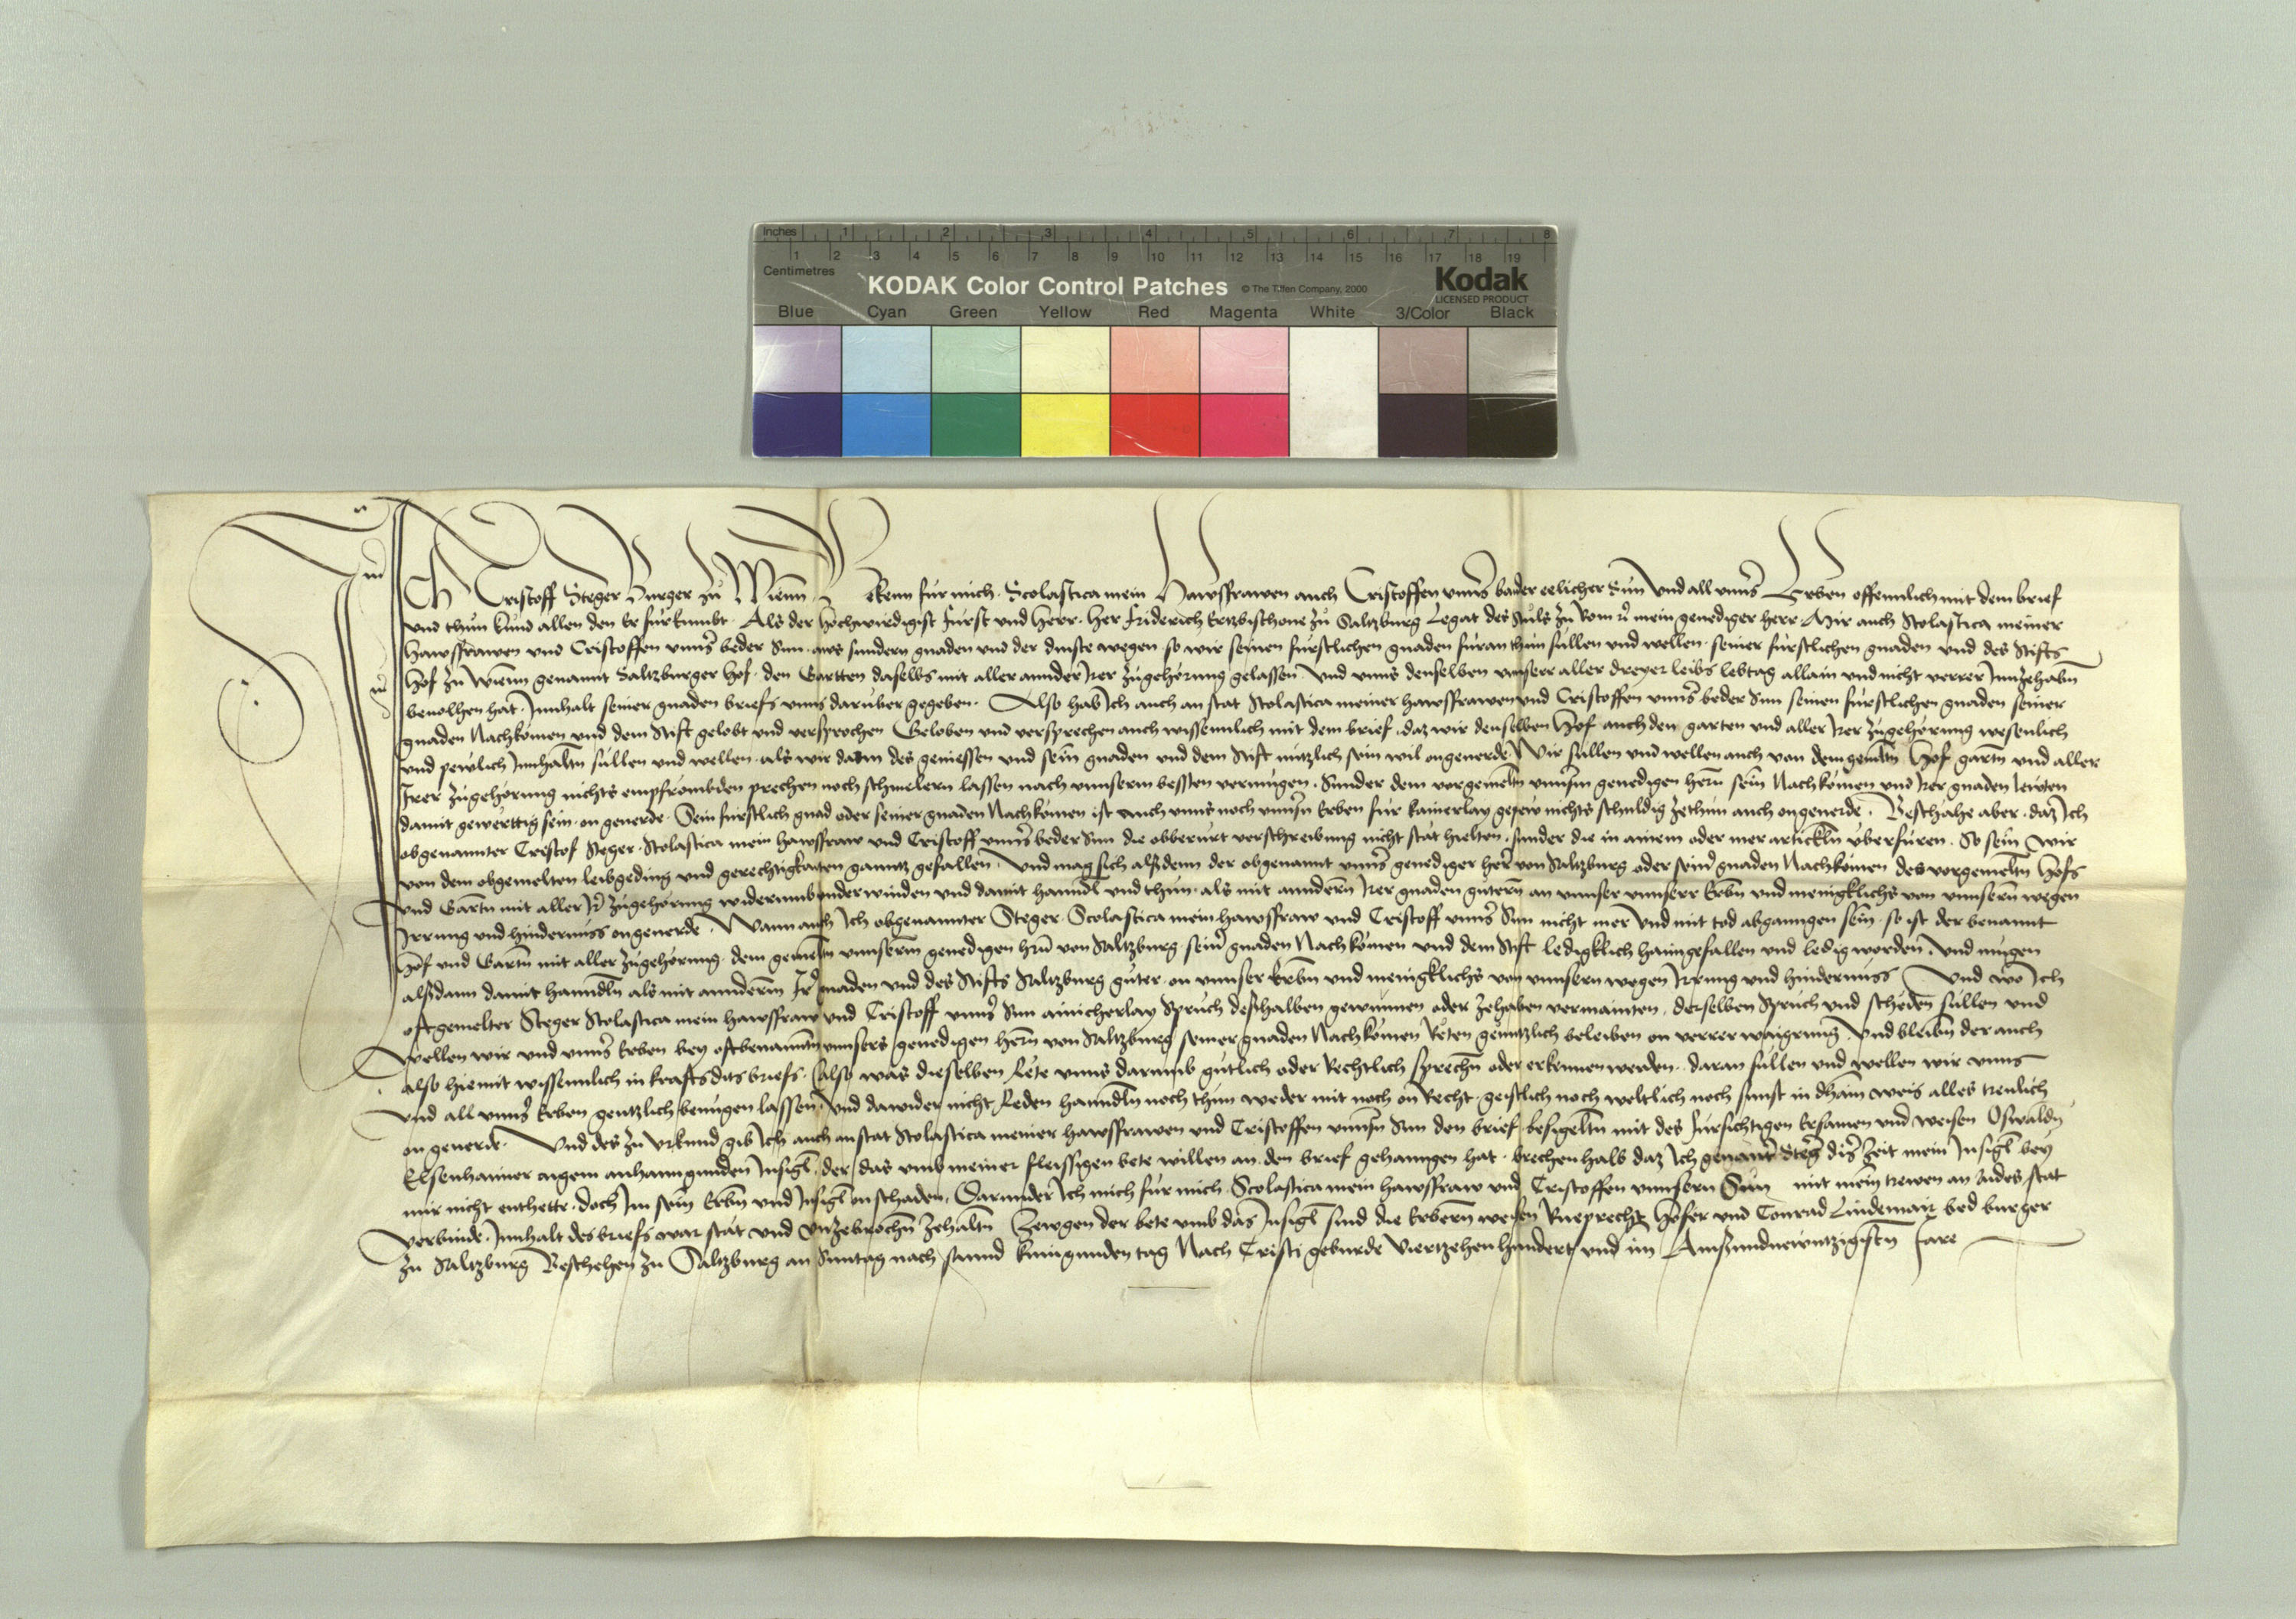 Inches 1 2 3 4 5 6 7 8
1 2 3 4 5 6 7 8 9 10 11 12 13 14 15 16 17 18 19
Centimetres
KODAK Color Control Patches © The Tiffen Company, 2000 Kodak
LICENSED PRODUCT
Blue Cyan Green Yellow Red Magenta White 3/Color Black
Ich Cristoff Steger Burger zu Wienn Bekenn fur mich Scolastica mein Hawsfrawen auch Cristoffen vnnser bader eelicher Sun Vnd all vnnser Erben offennlich mit dem brief
vnd thun kund allen den Er furkumbt. Als der hochwirdigist Furst vnd Herr. Her Friderich Ertzbischoue zu Saltzburg Legat des Stuls zu Rom mein genediger herr Mir auch Scolastica meiner
hawsfrawen vnd Cristoffen vnnser beder Sun aus sundern gnaden vnd der dinste wegen so wir seinen furstlichen gnaden furan thun sullen vnd wellen seiner furstlichen gnaden vnd des Stifts
Hof zu Wienn genannt Saltzburger Hof den Gartten daselbs mit aller annder Irer zugehorung gelassen vnd vnns denselben vnnserr aller dreyer leibs lebtag allain vnd nicht verrer Innzehabn
beuolhen hat. Innhalt seiner gnaden briefs vnns daruber gegeben. Also hab Ich auch an stat Scolastica meiner hawsfrawen vnd Cristoffen vnnser beder Sun seinen furstlichen gnaden seiner
gnaden Nachkomen vnd dem Stift gelobt vnd versprochen Geloben vnd versprechen auch wissennlich mit dem brief, daz wir denselben Hof auch den garten vnd aller Irer zugehorung wesenlich
vnd pewlich Innhaltn sullen vnd wellen als wir dann des geniessen vnd sein gnaden vnd dem Stift nutzlich sein wil ongeuerde Wir sullen vnd wellen auch von dem gemeltn Hof gartn vnd aller
Irer zugehorung nichts empfrombden prechen noch schmelern lassen nach vnnserm bessten vermugen. Sunder dem vorgemeltn vnnserm genedigen herrn sein Nachkomen vnd Irer gnaden lewten
damit gewerttig sein on geuerde. Sein furstlich gnad oder seiner gnaden Nachkomen ist auch vnns noch vnnsern Erben fur kainerlay gepew nichts schuldig zethun auch ongeuerde. Beschahe aber daz Ich
obgenannter Cristof Steger Scolastica mein hawsfraw vnd Cristoff vnnser beder Sun die obberurt verschreibung nicht stat hielten sunder die in ainem oder mer artickln vberfuren. So sein wir
von dem obgemelten leibgeding vnd gerechtigkaiten ganntz gefallen. Vnd mag sich alsdenn der obgenannt vnnser genediger herr von Saltzburg oder seiner gnaden Nachkomen des vorgemeltn Hofs
vnd Gartn mit aller Ir zugehorung widerumb vnderwinden vnd damit hanndl vnd thun als mit anndern Irer gnaden gutern an vnnser vnnserr Erbn vnd menigklichs von vnnsern wegen
Irrung vnd hindernuss ongeuerde. Wann auch Ich obgenannter Steger Scolastica mein hawsfraw vnd Cristoff vnnser Sun nicht mer vnd mit tod abganngen sein, so ist der benannt
Hof vnd Gartn mit aller zugehorung dem gemeltn vnnserm genedigen hern von Saltzburg seiner gnaden Nachkomen vnd dem Stift ledigklich haimgefallen vnd ledig worden. Vnd mugen
alsdann damit hanndln als mit annderm Ir gnaden vnd des Stifts Saltzburg guter on vnnser Erbn vnd menigklichs von vnnsern wegen Irrung vnd hindernuss Vnd wo Ich
oftgemelter Steger Scolastica mein hawsfraw vnd Cristoff vnnser Sun ainicherlay Spruch deshalben gewunnen oder zehaben vermainten, derselben Spruch vnd scheden sullen vnd
wellen wir vnd vnnser Erben bey oftbenanntn vnnsers genedigen hern von Saltzburg seiner gnaden Nachkomen Reten genntzlich beleiben on verrer waigrung Vnd bleibn der auch
also hiemit wissennlich in krafft ditz briefs. Also was dieselben Rete vnns darumb gutlich oder Rechtlich sprechn oder erkennen werden. daran sullen vnd wellen wir vnns
vnd all vnnser Erben gentzlich benugen lassen Vnd dawider nicht Reden hanndln noch thun weder mit noch on Recht geistlich noch weltlich noch sunst in dhain weis alles treulich
on geuerde. Vnd des zu vrkund gib Ich auch anstat Scolastica meiner hawsfrawen vnd Cristoffen vnnsern Sun den brief besigeltn mit des fursichtigen Ersamen vnd weisen Oswaldn
Elsenhaimer aigem anhanngunden Insigl, der das vmb meiner fleissigen bete willen an den brief gehanngen hat. brechenhalb daz Ich genannter Steger diser Zeit mein Insigl bey
mir nicht enthette. doch Im sein Erbn vnd Insigl on schaden. Darunder Ich mich fur mich Scolastica mein hawsfraw vnd Cristoffen vnnsern Sun mit mein trewen an Aides stat
verbinde. Innhalt des briefs war stat vnd vnzebrochn zehaltn Zewgen der bete vmb das Insigl sind die Erbern weisen Rueprecht Hofer vnd Conrad Lindemair bed burger
zu Saltzburg Beschehen zu Saltzburg an Sunntag nach sannd kunigunden tag Nach Cristi geburde Viertzehenhundert vnd im Ainsundnewntzigistn Jare